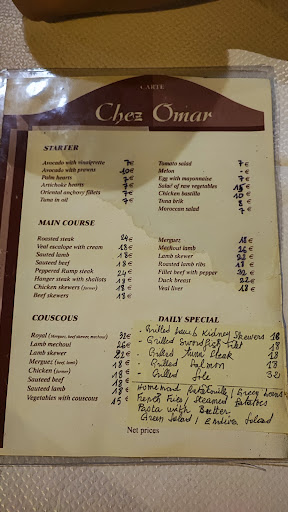 CARTE
Chez Omar
STARTER
Avocado with vinaigrette 7€
Avocado with prawns 10€
Palm hearts 7€
Artichoke hearts 7€
Oriental anchovy fillets 7€
Tuna in oil 7€
Tomato salad 7€
Melon - €
Egg with mayonnaise 7€
Salad of raw vegetables 15€
Chicken bastilla 10€
Tuna brik 8€
Moroccan salad 7€
MAIN COURSE
Roasted steak 24€
Veal escalope with cream 18€
Sauted lamb 18€
Sauteed beef 18€
Peppered Rump steak 24€
Hanger steak with shallots 19€
Chicken skewers (farmer) 18€
Beef skewers 18€
Merguez 18€
Mechoui lamb 26€
Lamb skewer 22€
Roasted lamb ribs 18€
Fillet beef with pepper 32€
Duck breast 22€
Veal liver 18€
COUSCOUS
Royal (Merguez, beef skewer, mechoui) 32€
Lamb mechoui 26€
Lamb skewer 22€
Merguez (beef lamb) 18€
Chicken (farmer) 18€
Sauteed beef 18€
Sauteed lamb 18€
Vegetables with couscous 15€
DAILY SPECIAL
- Grilled Lamb Kidney Skewers 18
- Grilled Swordfish Filet 18
- Grilled Tuna Steak 18
- Grilled Salmon 18
- Grilled Sole 32
Homemade Ratatouille / Green beans
French Fries / Steamed Potatoes
Pasta with Butter
Green Salad / Endive Salad
Net prices